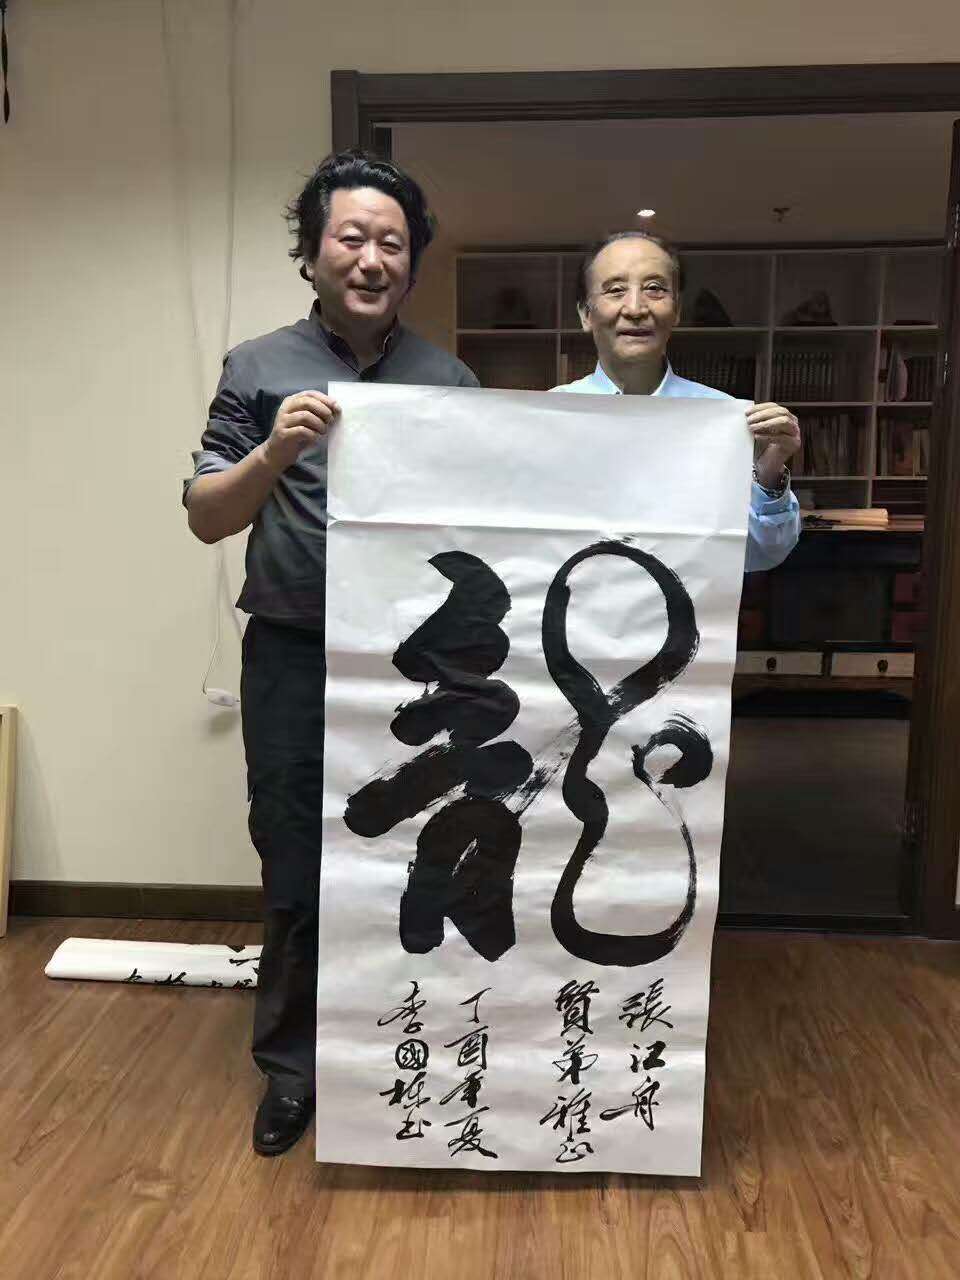 龍
張江舟
賢弟雅正
丁酉年夏
李國棟书